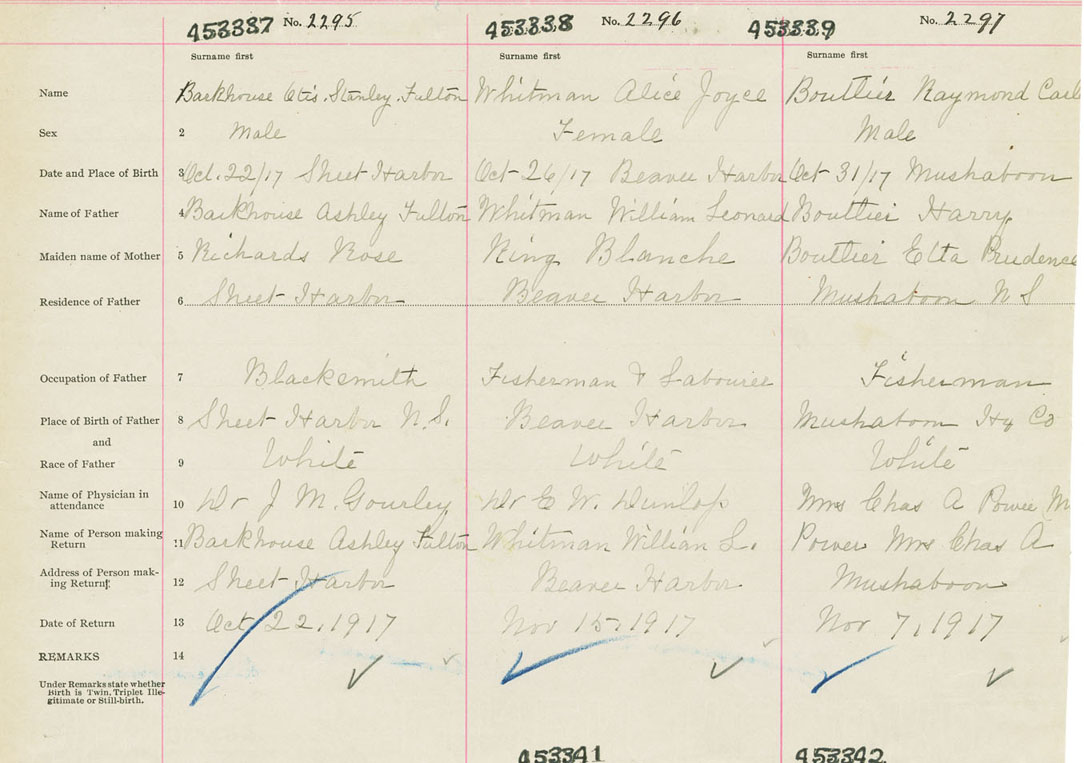 453337 No. 2295 453338 No. 2296 453339 No. 2297
Surname first Surname first Surname first
Name Barkhouse Otis. Stanley. Fulton Whitman Alice Joyce Bouttier Raymond
Sex 2 Male Female Male
Date and Place of Birth 3 Oct. 22/17 Sheet Harbor Oct 26/17 Beaver Harbor Oct 31/17 Mushaboon
Name of Father 4 Barkhouse Ashley Fulton Whitman William Leonard Bouttier Harry
Maiden name of Mother 5 Richards Rose King Blanche Bouttier Etta Prudence
Residence of Father 6 Sheet Harbor Beaver Harbor Mushaboon N S
Occupation of Father 7 Blacksmith Fisherman & Labourer Fisherman
Place of Birth of Father 8 Sheet Harbor N.S. Beaver Harbor Mushaboon Hx Co
and
Race of Father 9 White White White
Name of Physician in
attendance 10 Dr J M. Gourley Dr E W. Dunlop Mrs Chas A Power (M
Name of Person making
Return 11 Barkhouse Ashley Fulton Whitman William L. Power Mrs Chas A
Address of Person mak-
ing Return 12 Sheet Harbor Beaver Harbor Mushaboon
Date of Return 13 Oct 22, 1917 Nov 15, 1917 Nov 7, 1917
REMARKS 14
Under Remarks state whether
Birth is Twin, Triplet Ille-
gitimate or Still-birth.
453341 453342